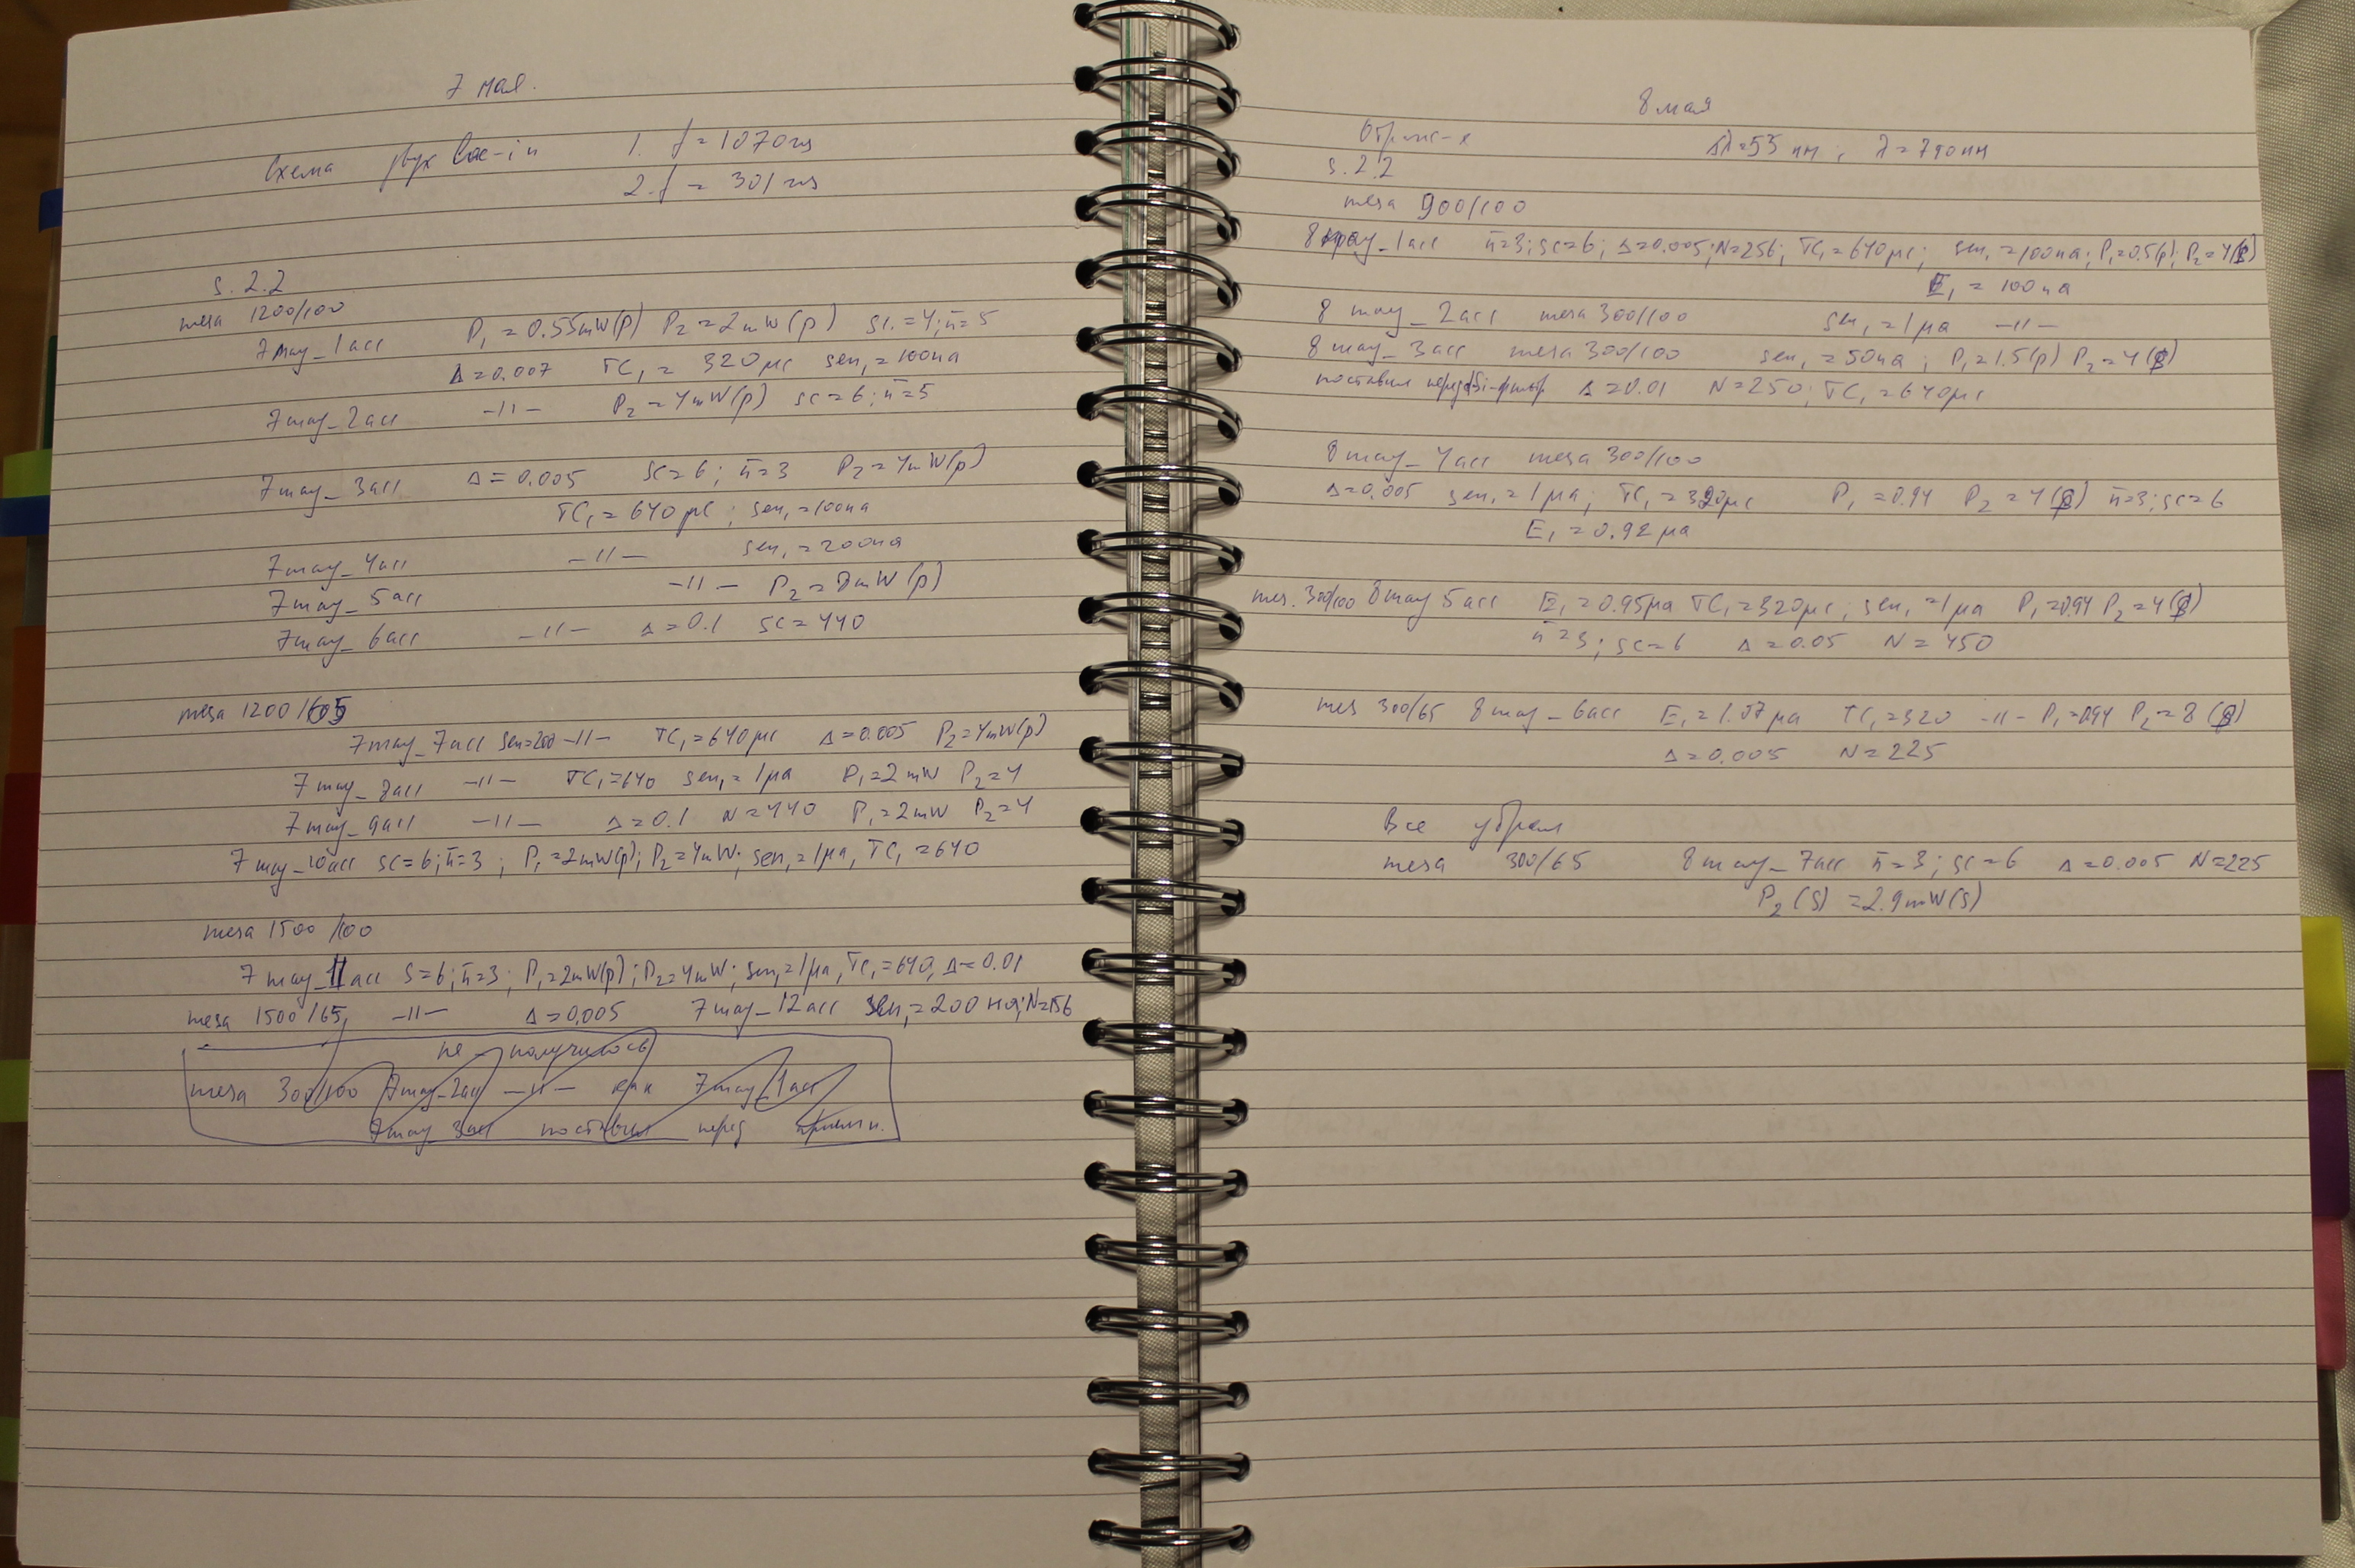 7 мая.
Схема двух Loc-in 1. f = 1070 гц
2. f = 301 гц
s. 2.2
mesa 1200/100
7may_1acc P₁ = 0.55mW(p) P₂ = 2mW(p) sc. = 4; n̄ = 5
Δ = 0.007 TC₁ = 320 μс sen₁ = 100на
7may_2acc –11– P₂ = 4mW(p) sc = 6; n̄ = 5
7may_3acc Δ = 0.005 sc = 6; n̄ = 3 P₂ = 4mW(p)
TC₁ = 640 μс; sen₁ = 100на
7may_4acc –11– sen₁ = 200на
7may_5acc –11– P₂ = 8mW(p)
7may_6acc –11– Δ = 0.1 sc = 440
mesa 1200/65
7may_7acc sen=200 –11– TC₁ = 640 μс Δ = 0.005 P₂ = 4mW(p)
7may_8acc –11– TC₁ = 640 sen₁ = 1μа P₁ = 2mW P₂ = 4
7may_9acc –11– Δ = 0.1 N = 440 P₁ = 2mW P₂ = 4
7may_10acc sc = 6; n̄ = 3; P₁ = 2mW(p); P₂ = 4mW; sen₁ = 1μа, TC₁ = 640
mesa 1500/100
7may_11acc S = 6; n̄ = 3; P₁ = 2mW(p); P₂ = 4mW; sen₁ = 1μа, TC₁ = 640, Δ = 0.01
mesa 1500/65, –11– Δ = 0,005 7may_12acc sen₁ = 200 на; N=156
не получилось
mesa 300/100 7may_2acc –11– как 7may_1acc
7may_3acc поставил перед
8 мая
Δλ = 55 нм; λ = 790 нм
s. 2.2
mesa 900/100
8may_1acc n̄=3; sc=6; Δ=0.005; N=256; TC₁ = 640μс; sen₁ = 100на; P₁=0.5(p); P₂ = 4(s)
E₁ = 100на
8 may_2acc mesa 300/100 sen₁ = 1μа –11–
8 may_3acc mesa 300/100 sen₁ = 50на; P₁ = 1.5(p) P₂ = 4(s)
поставил перед Si-фильтр Δ = 0.01 N = 250; TC₁ = 640μс
8may_4acc mesa 300/100
Δ=0.005 sen₁ = 1μа; TC₁ = 320μс P₁ = 0.94 P₂ = 4(s) n̄=3; sc=6
E₁ = 0.92μа
mes. 300/100 8may 5acc E₁ = 0.95μа TC₁ = 320μс; sen₁ = 1μа P₁ = 0.94 P₂ = 4(s)
n̄ = 3; sc = 6 Δ = 0.05 N = 450
mes 300/65 8may_6acc E₁ = 1.07μа TC₁ = 320 –11– P₁ = 0.94 P₂ = 8(s)
Δ = 0.005 N = 225
Все убрал
mesa 300/65 8may_7acc n̄ = 3; sc = 6 Δ = 0.005 N = 225
P₂(s) = 2.9mW(s)